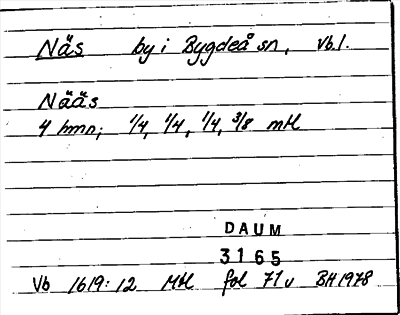 Näs by i Bygdeå sn, Vb.l.
Nääs
4 hmn; 1/4, 1/4, 1/4, 3/8 mtl
DAUM
3165
Vb 1619:12 Mtl fol 71v BH 1978